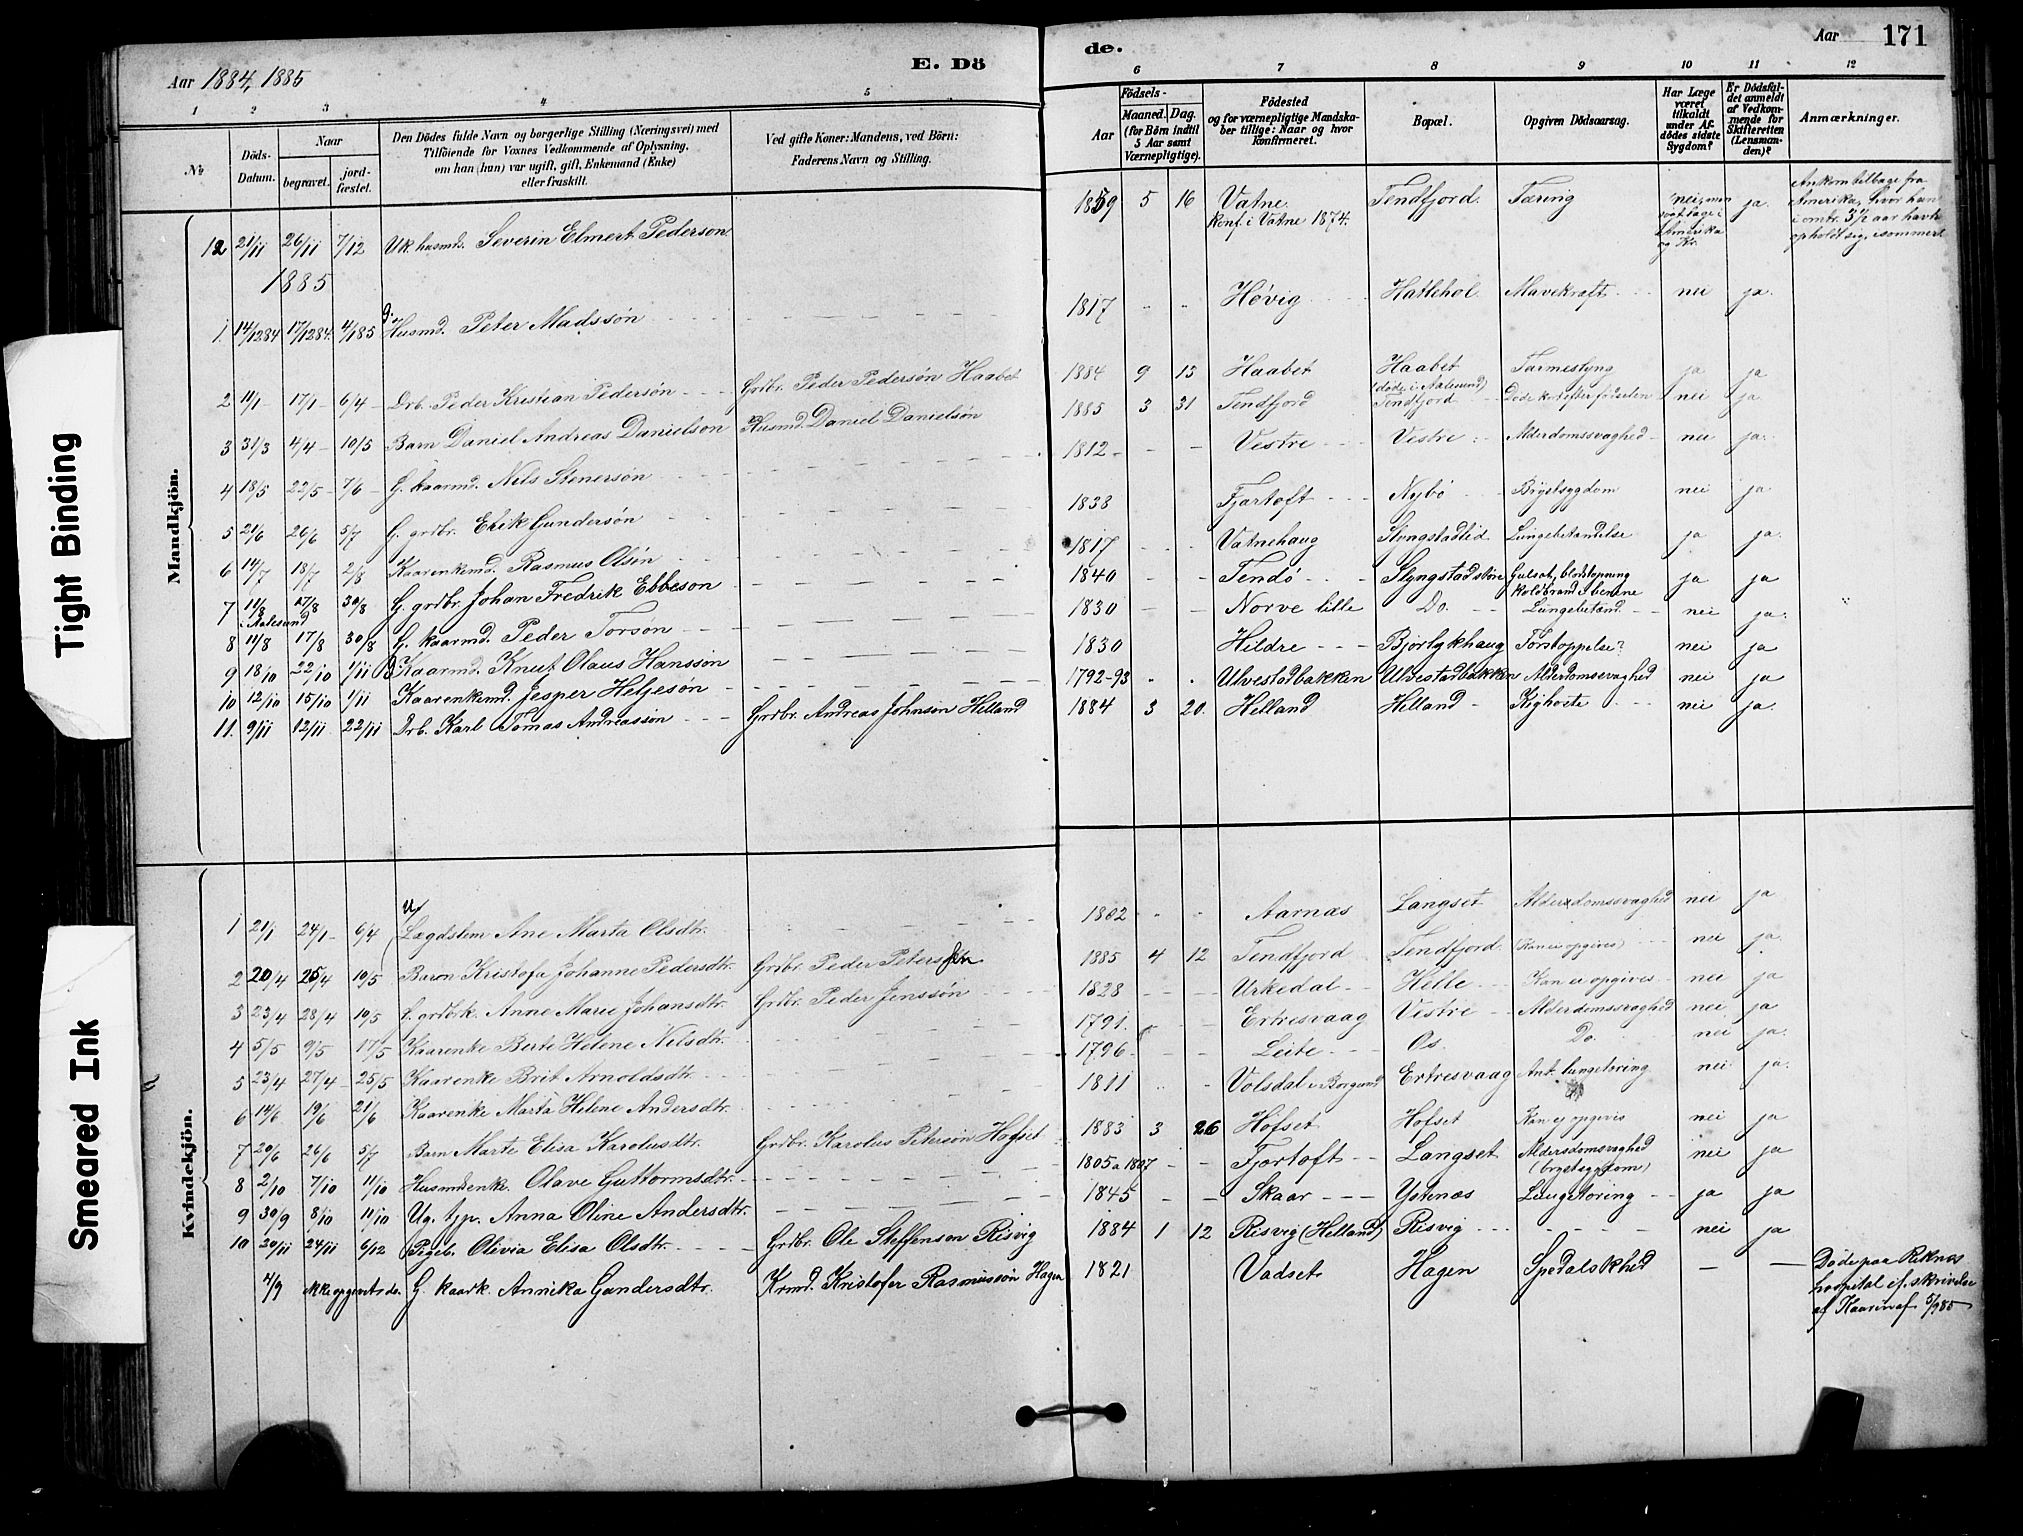 Aar 1884, 1885
E. Dö
de.
Aar
171
1 2 3 4 5 6 7 8 9 10 11 12
№
Döds-Datum.
Naar
begravet.
jord-fæstet.
Den Dödes fulde Navn og borgerlige Stilling (Næringsvei) med
Tilföiende for Voxnes Vedkommende af Oplysning,
om han (hun) var ugift, gift, Enkemand (Enke)
eller fraskilt.
Ved gifte Koner: Mandens, ved Börn:
Faderens Navn og Stilling.
Aar
Födsels-
Maaned. Dag.
(for Börn indtil
5 Aar samt
Værnepligtige).
Födested
og for værnepligtige Mandska-
ber tillige: Naar og hvor
konfirmeret.
Bopæl.
Opgiven Dödsaarsag.
Har Læge
været
tilkaldt
under Af-
dödes sidste
Sygdom?
Er Dödsfal-
det anmeldt
af Vedkom-
mende for
Skifteretten
(Lensman-
den)?
Anmærkninger.
Mandkjön.
12 21/11 26/11 7/12 Uk husmd. Severin Elmert Pederson 1859 5 16 Vatne konf. i Vatne 1874. Tendfjord. Tæring nei, men i Amerika og Kr. ja. Ankom tilbage fra Amerika, hvor han i omtr. 3½ aar havde opholdt sig, i sommer
1885
1. 14/12 84 17/12 84. 4/1 85 G. Husmd. Peter Madssøn 1817 Høvig Hatlehol Mavekræft nei ja.
2 11/1 17/1 6/4 Drb. Peder Kristian Pedersøn Grdbr. Peder Pedersøn Haabet 1884 9 15 Haabet Haabet (døde i Aalesund) Tarmeslyng ja ja
3 31/3 4/4 10/5 Barn Daniel Andreas Danielson Husmd. Daniel Danielsøn 1885 3 31 Tendfjord Tendfjord Døde kort efter fødselen nei ja
4 18/5 22/5 7/6 G. kaarmd. Nils Stenersøn 1812 Vestre Vestre Alderdomssvaghed nei ja.
5 21/6 26/6 5/7 G. grdbr. Erik Gundersøn 1838 Fjærtoft Nybø Brystsygdom nei ja.
6 14/7 18/7 2/8 Kaarenkemd. Rasmus Olsøn 1817 Vatnehaug Slyngstadlid Lungebetændelse ja ja.
7 11/8 i Aalesund 17/8 30/8 G. grdbr. Johan Fredrik Ebbeson 1840 Tendø Slyngstadstøre Gulsot, blodstopning koldbrand i benene ja ja
8 11/8 17/8 30/8 G. kaarmd. Peder Torsøn 1830 Norve lille Do. Lungebetænd. nei ja.
9 18/10 22/10 1/11 G. Kaarmd. Knut Olaus Hanssøn 1830 Hildre Bjørlykhaug Forstoppelse? nei ja
10 12/10 15/10 1/11 Kaarenkemd. Jesper Heljesøn 1792-93 Ulvestadbakken Ulvestadbakken Alderdomssvaghed nei ja
11. 9/11 12/11 22/11 Drb. Karl Tomas Andreassøn Grdbr. Andreas Johnsøn Helland 1884 3 20. Helland Helland Kighoste nei ja.
Kvindekjön.
1 21/1 24/1 6/4 U Lægdslem Ane Marta Olsdtr. 1802 Aarnæs Langset Alderdomssvaghed nei ja
2 20/4 25/4 10/5 Barn Kristofa Johanne Pedersdtr. Grdbr. Peder Petersøn 1885 4 12 Tendfjord Tendfjord. (Kan ei opgives) nei ja.
3 23/4 28/4 10/5 G. grdbrk. Anne Marie Johansdtr. Grdbr. Peder Jenssøn 1828 Urkedal Helle Kan ei opgives nei ja
4 5/5 9/5 17/5 Kaarenke Berte Helene Nilsdtr. 1791. Ertresvaag Vestre Alderdomssvaghed nei ja
5 23/4 27/4 25/5 Kaarenke Brit Arnoldsdtr. 1796 Leite Os Do. nei ja.
6 14/6 19/6 21/6 Kaarenke Marta Helene Andersdtr. 1811 Volsdal i Borgund Ertresvaag Ant. lungetæring nei ja.
7 20/6 26/6 5/7 Barn Marte Elisa Karolusdtr. Grdbr. Karolus Petersøn Hofset 1883 3 26 Hofset Hofset Kan ej opgives nei ja
8 2/10 7/10 11/10 Husmdsenke. Olave Guttormsdtr. 1805 a 1807 Fjørtoft Langset Aldersdomsvaghed (brystsygdom) nei ja
9 30/9 8/10 11/10 Ug. tjp. Anna Oline Andersdtr. 1845 Skaar Ystenæs Lungetæring ja ja
10 20/11 24/11 6/12 Pigeb. Olivia Elisa Olsdtr. Grdbr. Ole Steffenson Risvig 1884 1 12 Risvig (Helland) Risvig nei ja
4/9 ikke opgivet do. G. kaark. Annika Gundersdtr. Krmd. Kristofer Rasmussøn Hagen 1821 Vadset Hagen Spedalskhed Døde paa Reknæs hospital ef. skrivelse af Kaarmaf 5/9 85
Tight Binding
Smeared Ink